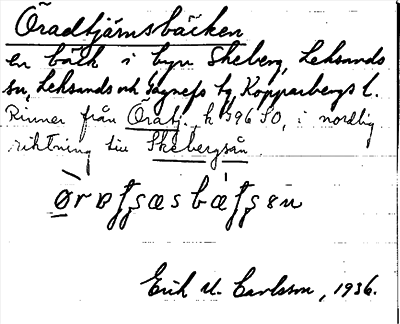 Öradtjärnsbäcken
en bäck i byn Skeberg, Leksands
sn, Leksands och Gagnefs tg, Kopparbergs l.
Rinner från Öratj. k 396 SO, i nordlig
riktning till Skebergsån
Erik U. Carlsson, 1936.